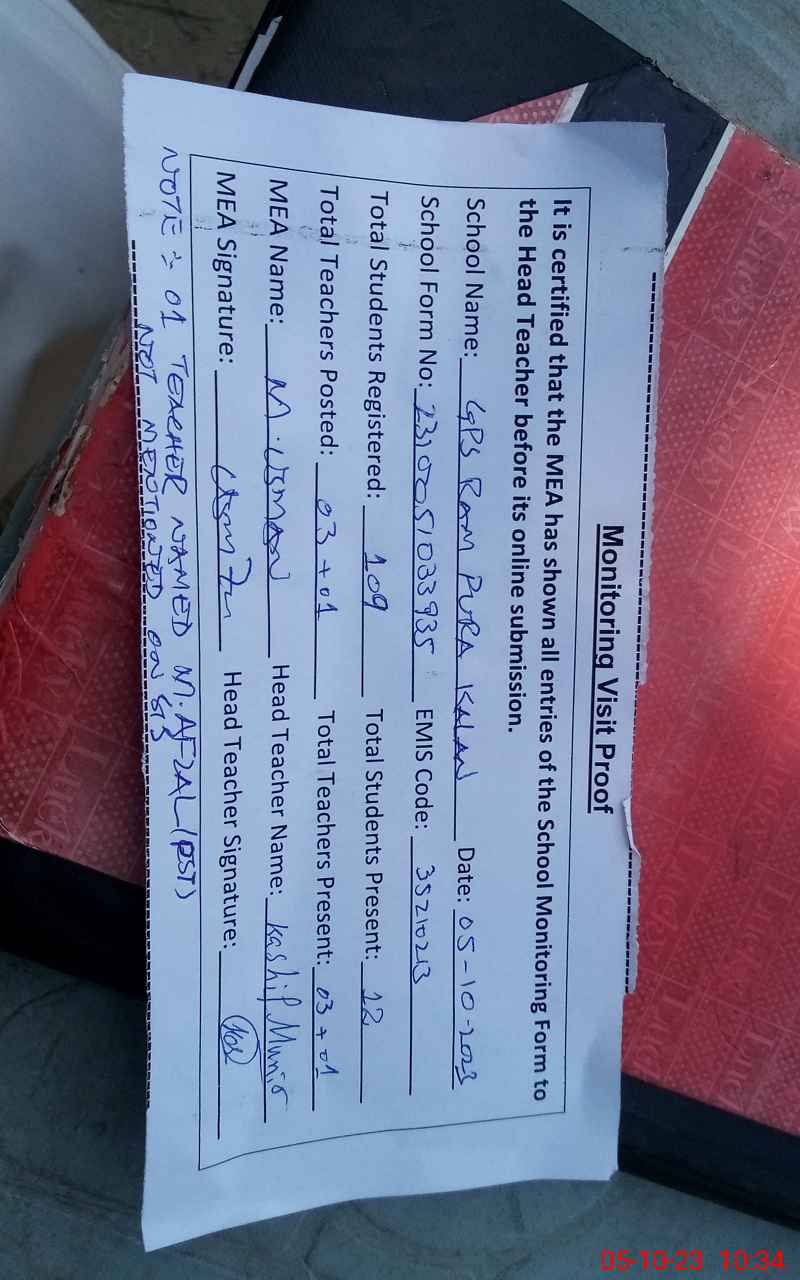 Monitoring Visit Proof
It is certified that the MEA has shown all entries of the School Monitoring Form to
the Head Teacher before its online submission.
School Name: GPS RAM PURA KALAN Date: 05-10-2023
School Form No: 2310051033935 EMIS Code: 35210213
Total Students Registered: 109 Total Students Present: 12
Total Teachers Posted: 03 + 01 Total Teachers Present: 03 + 01
MEA Name: M. USMAN Head Teacher Name: Kashif Munir
MEA Signature: Head Teacher Signature:
NOTE :- 01 TEACHER NAMED M. AFZAL (PST)
NOT MENTIONED ON SIS
Lucky
05-10-23 10:34